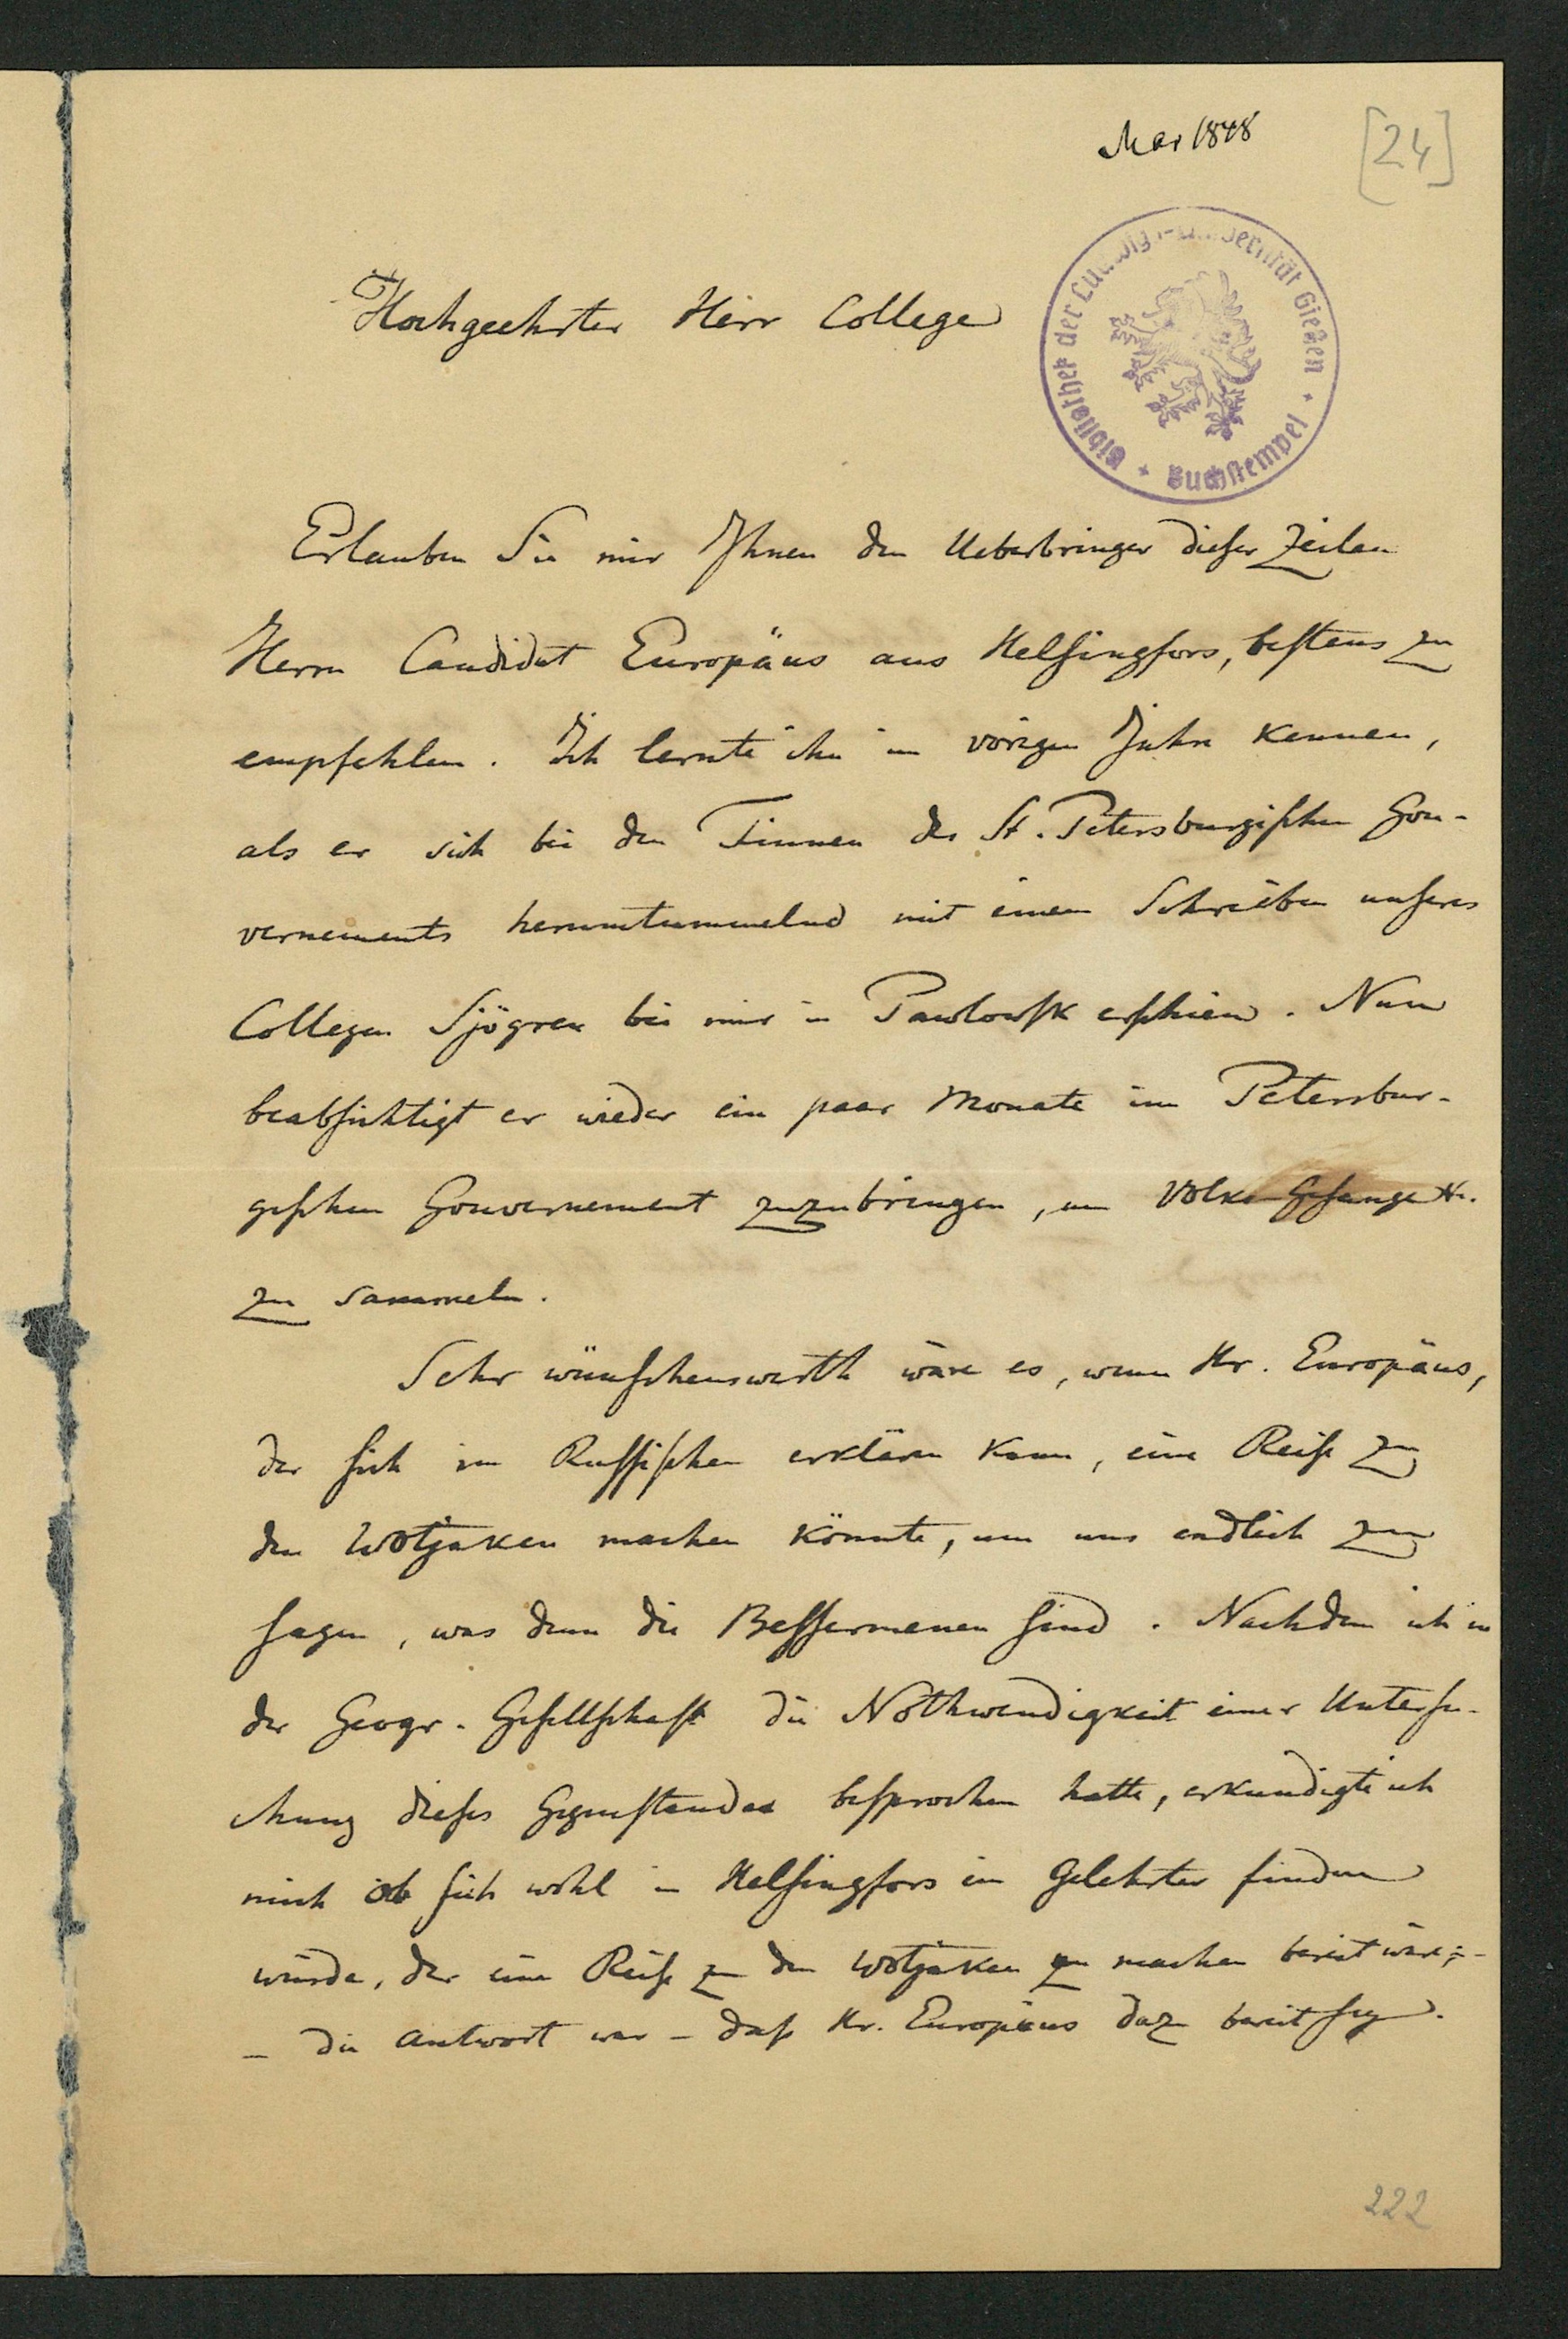 Mai 1848
[24]
Bibliothek der Ludwigs-Universität Gießen * Buchstempel *
Hochgeehrter Herr College
Erlauben Sie mir Ihnen den Ueberbringer dieser Zeilen
Herrn Candidat Europäus aus Helsingfors, bestens zu
empfehlen. Ich lernte ihn im vorigen Jahre kennen,
als er sich bei den Finnen des St. Petersburgischen Gou-
vernements herumtummelnd mit einem Schreiben unseres
Collegen Sjögren bei mir in Pawlowsk erschien. Nun
beabsichtigt er wieder ein paar Monate im Petersbur-
gischen Gouvernement zuzubringen, um Volks-Gesänge &c.
zu sammeln.
Sehr wünschenswerth wäre es, wenn Hr. Europäus,
der sich im Russischen erklären kann, eine Reise zu
den Wotjaken machen könnte, um uns endlich zu
sagen, was denn die Bessermenen sind. Nachdem ich in
der Geogr. Gesellschaft die Nothwendigkeit einer Untersu-
chung dieses Gegenstandes besprochen hatte, erkundigte ich
mich ob sich wohl in Helsingfors ein Gelehrter finden
würde, der eine Reise zu den Wotjaken zu machen bereit wäre; -
- die Antwort war - daß Hr. Europäus dazu bereit sey.
222